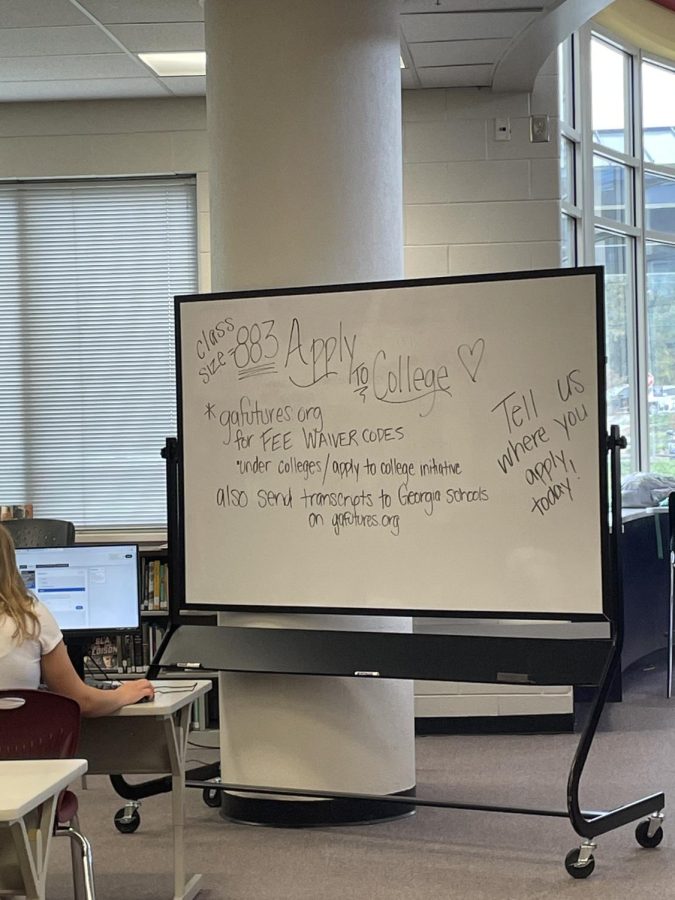 class
size = 883
Apply
to
College ♡
* gafutures.org
for FEE WAIVER CODES
*under colleges/apply to college initiative
also send transcripts to Georgia Schools
on gafutures.org
Tell us
where you
apply
today!